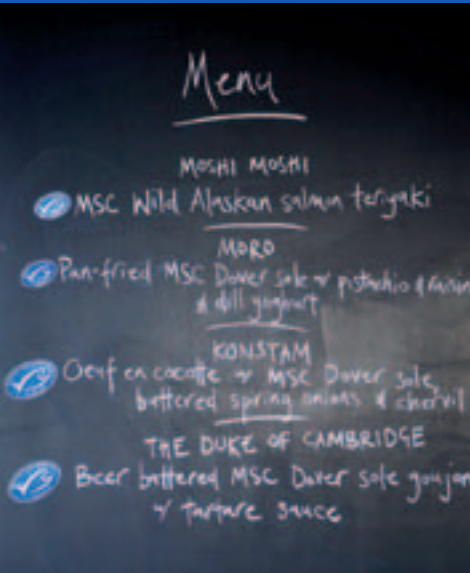 Menu
MOSHI MOSHI
MSC Wild Alaskan salmon teriyaki
MORO
Pan-fried MSC Dover sole w pistachio & raisin
& dill yoghourt
KONSTAM
Oeuf en cocotte w MSC Dover sole,
buttered spring onions & chervil
THE DUKE OF CAMBRIDGE
Beer battered MSC Dover sole goujon
w tartare sauce